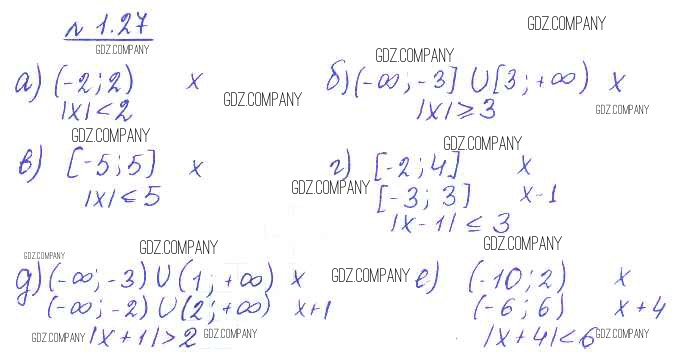 N 1.27
GDZ.COMPANY
GDZ.COMPANY
а) (-2; 2) x
|x| < 2
GDZ.COMPANY
GDZ.COMPANY
б) (-∞; -3] ∪ [3; +∞) x
|x| ≥ 3
GDZ.COMPANY
GDZ.COMPANY
в) [-5; 5] x
|x| ≤ 5
GDZ.COMPANY
GDZ.COMPANY
г) [-2; 4] x
[-3; 3] x-1
|x-1| ≤ 3
GDZ.COMPANY
GDZ.COMPANY
GDZ.COMPANY
д) (-∞; -3) ∪ (1; +∞) x
(-∞; -2) ∪ (2; +∞) x+1
GDZ.COMPANY |x+1| > 2 GDZ.COMPANY
GDZ.COMPANY
е) (-10; 2) x
(-6; 6) x+4
|x+4| < 6 GDZ.COMPANY